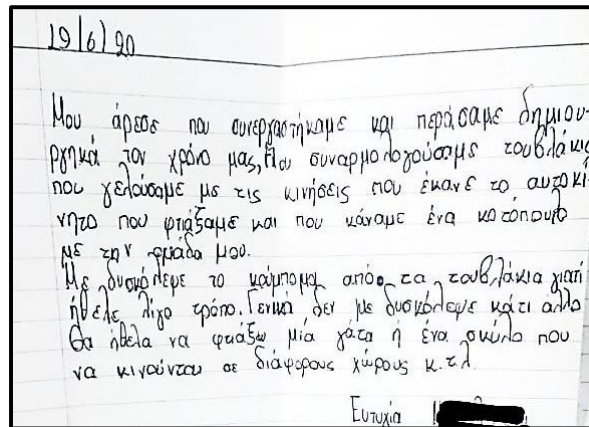 19/6/20
Μου άρεσε που συνεργαστήκαμε και περάσαμε δημιου-
ργηκά τον χρόνο μας, που συναρμολογούσαμε τουβλάκια
που γελούσαμε με τις κινήσεις που έκανε το αυτοκί-
νητο που φτιάξαμε και που κάναμε ένα κοτόπουλο
με την ομάδα μου.
Με δυσκόλεψε το κούμπομα από τα τουβλάκια γιατί
ήθελε λίγο τρόπο. Γενικά δεν με δυσκόλεψε κάτι άλλο
Θα ήθελα να φτιάξω μία γάτα ή ένα σκύλο που
να κινούνται σε διάφορους χώρους κ.τ.λ.
Ευτυχία